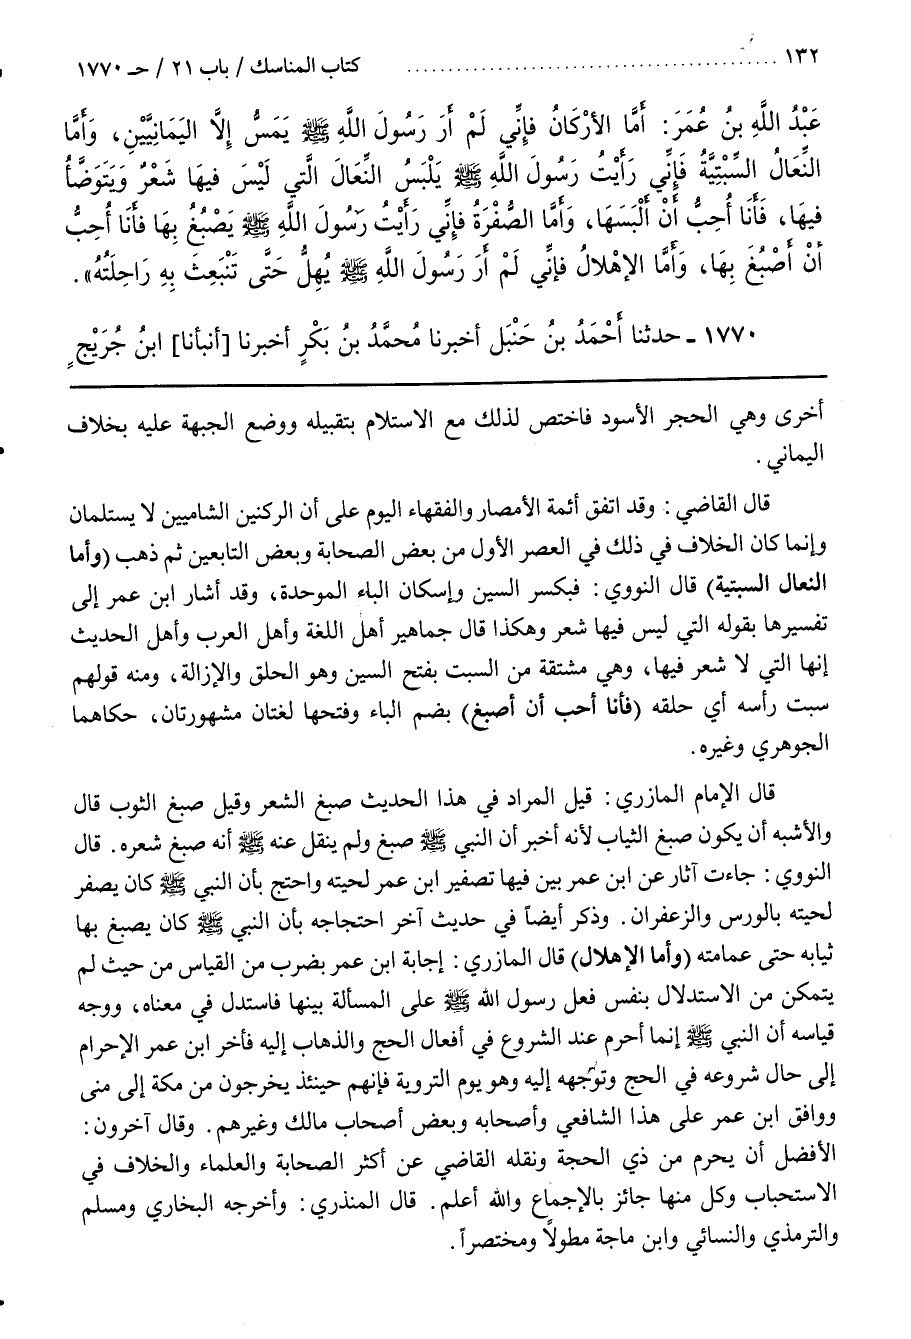 ١٣٢ ........................................ كتاب المناسك / باب ٢١ / حـ ١٧٧٠
عَبْدُ اللَّهِ بنُ عُمَرَ: أَمَّا الأرْكَانُ فإِنِّي لَمْ أَرَ رَسُولَ اللَّهِ ﷺ يَمَسُّ إلَّا اليَمانِيَّيْنِ، وَأَمَّا
النِّعَالُ السِّبْتِيَّةُ فَإِنِّي رَأَيْتُ رَسُولَ اللَّهِ ﷺ يَلْبَسُ النِّعَالَ الَّتي لَيْسَ فيهَا شَعْرٌ وَيَتَوَضَّأُ
فيهَا، فَأَنَا أُحِبُّ أَنْ أَلْبَسَهَا، وَأَمَّا الصُّفْرَةُ فإِنِّي رَأَيْتُ رَسُولَ اللَّهِ ﷺ يَصْبُغُ بِهَا فأَنَا أُحِبُّ
أنْ أَصْبُغَ بِهَا، وَأَمَّا الإهْلالُ فإِنِّي لَمْ أَرَ رَسُولَ اللَّهِ ﷺ يُهِلُّ حَتَّى تَنْبَعِثَ بِهِ رَاحِلَتُهُ».
١٧٧٠ ـ حدثنا أَحْمَدُ بنُ حَنْبَل أخبرنا مُحمَّدُ بنُ بَكْرٍ أخبرنا [أنبأنا] ابنُ جُرَيْجٍ
أخرى وهي الحجر الأسود فاختص لذلك مع الاستلام بتقبيله ووضع الجبهة عليه بخلاف
اليماني.
قال القاضي: وقد اتفق أئمة الأمصار والفقهاء اليوم على أن الركنين الشاميين لا يستلمان
وإنما كان الخلاف في ذلك في العصر الأول من بعض الصحابة وبعض التابعين ثم ذهب (وأما
النعال السبتية) قال النووي: فبكسر السين وإسكان الباء الموحدة، وقد أشار ابن عمر إلى
تفسيرها بقوله التي ليس فيها شعر وهكذا قال جماهير أهل اللغة وأهل العرب وأهل الحديث
إنها التي لا شعر فيها، وهي مشتقة من السبت بفتح السين وهو الحلق والإزالة، ومنه قولهم
سبت رأسه أي حلقه (فأنا أحب أن أصبغ) بضم الباء وفتحها لغتان مشهورتان، حكاهما
الجوهري وغيره.
قال الإمام المازري: قيل المراد في هذا الحديث صبغ الشعر وقيل صبغ الثوب قال
والأشبه أن يكون صبغ الثياب لأنه أخبر أن النبي ﷺ صبغ ولم ينقل عنه ﷺ أنه صبغ شعره. قال
النووي: جاءت آثار عن ابن عمر بين فيها تصفير ابن عمر لحيته واحتج بأن النبي ﷺ كان يصفر
لحيته بالورس والزعفران. وذكر أيضاً في حديث آخر احتجاجه بأن النبي ﷺ كان يصبغ بها
ثيابه حتى عمامته (وأما الإهلال) قال المازري: إجابة ابن عمر بضرب من القياس من حيث لم
يتمكن من الاستدلال بنفس فعل رسول الله ﷺ على المسألة بينها فاستدل في معناه، ووجه
قياسه أن النبي ﷺ إنما أحرم عند الشروع في أفعال الحج والذهاب إليه فأخر ابن عمر الإحرام
إلى حال شروعه في الحج وتوجهه إليه وهو يوم التروية فإنهم حينئذ يخرجون من مكة إلى منى
ووافق ابن عمر على هذا الشافعي وأصحابه وبعض أصحاب مالك وغيرهم. وقال آخرون:
الأفضل أن يحرم من ذي الحجة ونقله القاضي عن أكثر الصحابة والعلماء والخلاف في
الاستحباب وكل منها جائز بالإجماع والله أعلم. قال المنذري: وأخرجه البخاري ومسلم
والترمذي والنسائي وابن ماجة مطولاً ومختصراً.